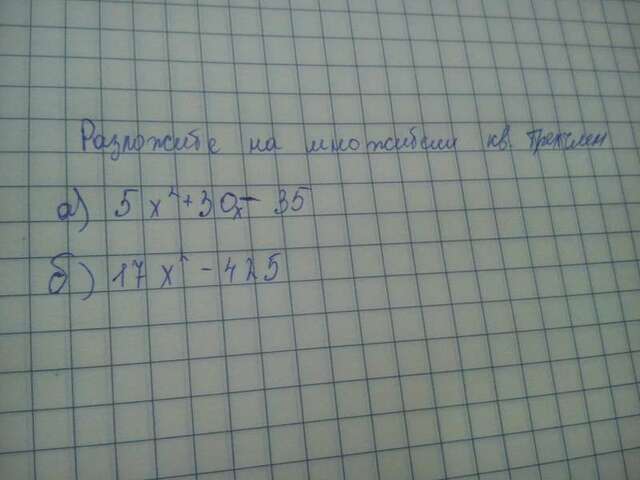 Разложите на множители кв. трехчлен
а) 5x²+30x-35
б) 17x²-425